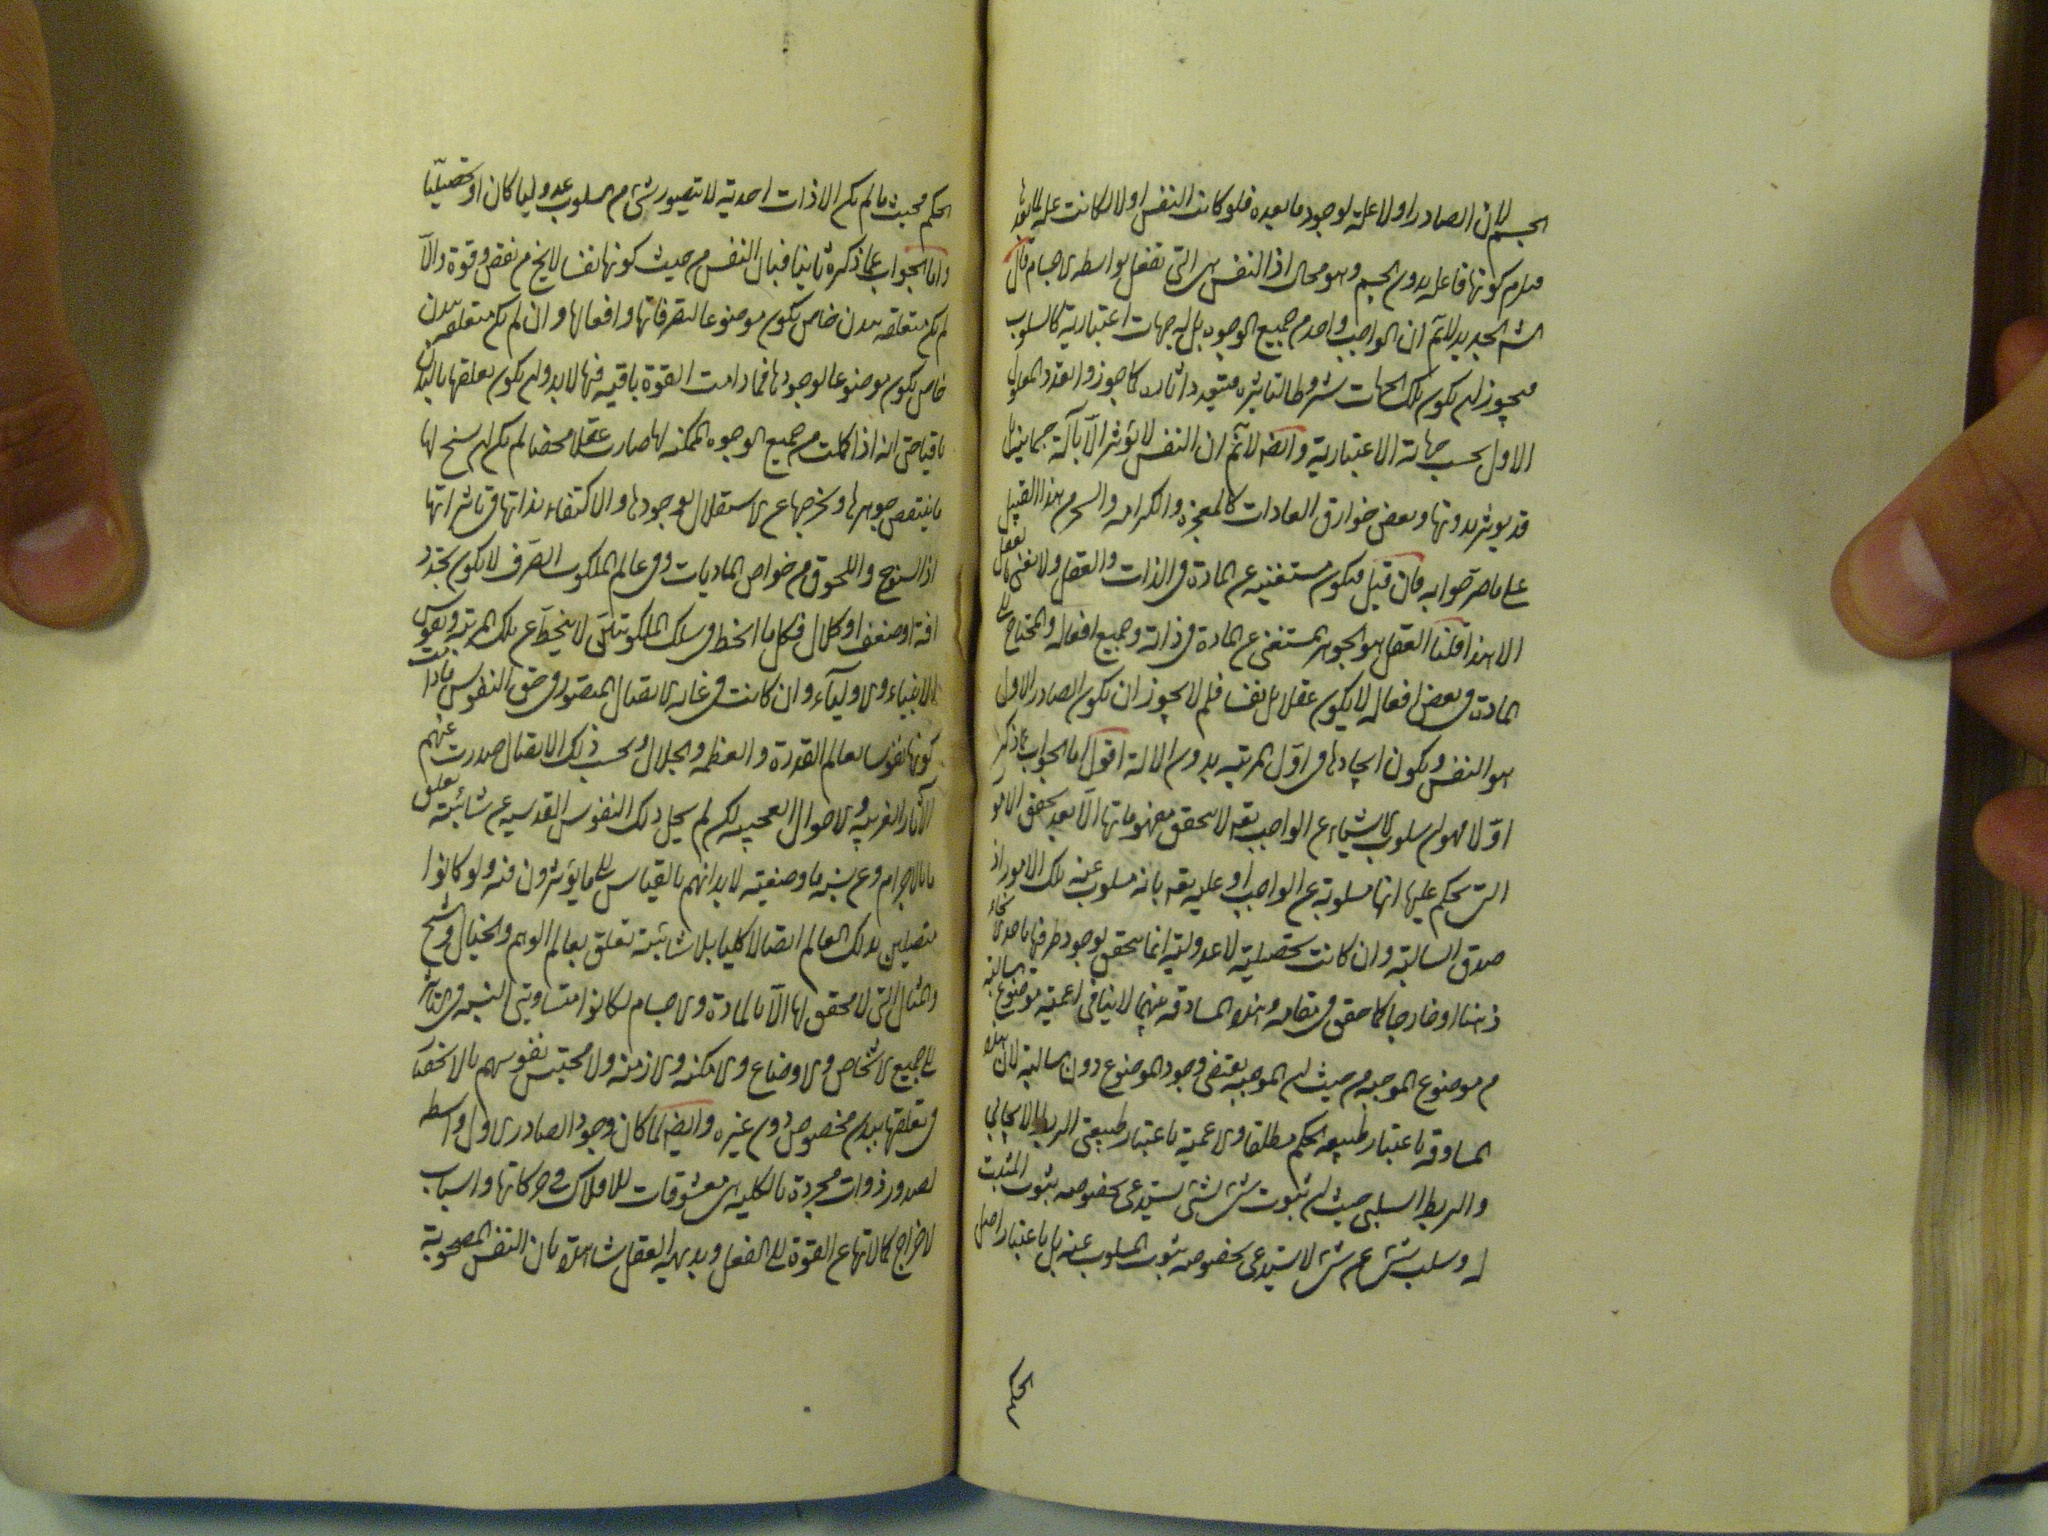 الجسم لان الصادر اولا علة لوجود ما بعده فلو كانت النفس اولا لكانت علة لما بعدها
فيلزم كونها فاعله بدون الجسم وهو محال اذ النفس هى التى تفعل بواسطه الاجسام قال
الش الجديد لانم ان الواجب واحد من جميع الوجوه بل له جهات اعتبارية كالسلوب
فيجوز ان يكون تلك الجهات شروطا لتاثيره فيتعدد اثاره كما جوزوا تعدد المعلول
الاول بحسب جهاته الاعتبارية وايضا لانم ان النفس لا يؤثر الا بآلة جسمانية بل
قد يوثر بدونها وبعض خوارق العادات كالمعجزة والكرامه والسحر من هذا القبيل
على ما صرحوا به فان قيل فيكون مستغنيه عن المادة فى الذات والفعل ولا نعنى بالعقل
الا هذا قلنا العقل هو الجوهر المستغنى عن المادة فى ذاته وجميع افعاله والمحتاج الى
المادة فى بعض افعاله لا يكون عقلا بل نفسا فلم لا يجوز ان يكون الصادر الاول
هو النفس ويكون ايجادها فى اول المرتبه بدون الالة اقول اما الجواب عما ذكر
اولا فهو ان سلوب الاشياء عن الواجب تعه لا يتحقق مفهوماتها الا بعد تحقق الامور
التى يحكم عليها انها مسلوبة عن الواجب او عليه تعه بانه مسلوب عنه تلك الامور اذ
صدق السالبة وان كانت تحصيلية لا عدولية انما يتحقق بوجود طرفها باحدى انحاء
ذهنا او خارجا كما حقق فى مقامه وهذه المساوقه بينهما لا ينافى اعمية موضوع السالبه
من موضوع الموجبه من حيث ان الموجبه يقتضى وجود الموضوع دون السالبة لان هذه
المساوقه باعتبار طبيعه الحكم مطلقا والاعمية باعتبار طبيعتى الربط الايجابى
والربط السلبى حيث ان ثبوت شئ لشئ يستدعى بخصوصه ثبوت المثبت
له وسلب شئ عن شئ لا يستدعى بخصوصه ثبوت المسلوب عنه بل باعتبار اصل
الحكم
الحكم فحيث ما لم يكن الا ذات احدية لا يتصور شئ من السلوب عدوليا كان او تحصيليا
واما الجواب عما ذكره ثانيا فبان النفس من حيث كونها نفسا لا يخ من نقص وقوة والا
لم يكن متعلقه ببدن خاص يكون موضوعا لتصرفاتها وافعالها وان لم يكن متعلقه ببدن
خاص يكون موضوعا لوجودها فما دامت القوة باقيه فيها لا بد وان يكون تعلقها بالبدن
باقيا حتى انه اذا كملت من جميع الوجوه الممكنه لها صارت عقلا محضا لم يكن ان يسنح لها
ما ينتقص جوهرها ويخرجها عن الاستقلال بوجودها والاكتفاء بذاتها فى تاثيراتها
اذ السنوح واللحوق من خواص الماديات وفى عالم الملكوت الصرف لا يكون تجدد
افة او ضعف او كلال فكل ما انخط فى سلك الملكوتيين لا ينحط عن تلك المرتبه ونفوس
الانبياء والاولياء وان كانت فى غاية الاتصال المتصور فى حق النفوس ما دامت
كونها نفوسا بعالم القدرة والعظمه والجلال وبحسب ذلك الاتصال صدرت عنهم
الآثار الغريبه والاحوال العجيبه لكن لم يخل تلك النفوس القدسيه عن شائبة تعلق
ما بالاجرام وعن نسبة ما وضعية لابدانهم بالقياس الى ما يؤثرون فيه ولو كانوا
متصلين بذلك العالم اتصالا كليا بلا شائبة تعلق بعالم الوهم والخيال والشبح
والمثال التى لا تحقق لها الا بالمادة والاجسام لكانوا متساوى النسبه فى التاثير
الى جميع الاشخاص والاوضاع والامكنه والازمنه ولا يحتبس نفوسهم بالاختصاص
فى تعلقها ببدن مخصوص دون غيره وايضا لما كان وجود الصادر الاول واسطه
لصدور ذوات مجردة بالكليه هى معشوقات للافلاك فى حركاتها واسباب
لاخراج كمالاتها عن القوة الى الفعل وبديهة العقل شاهدة بان النفس المصحوبة